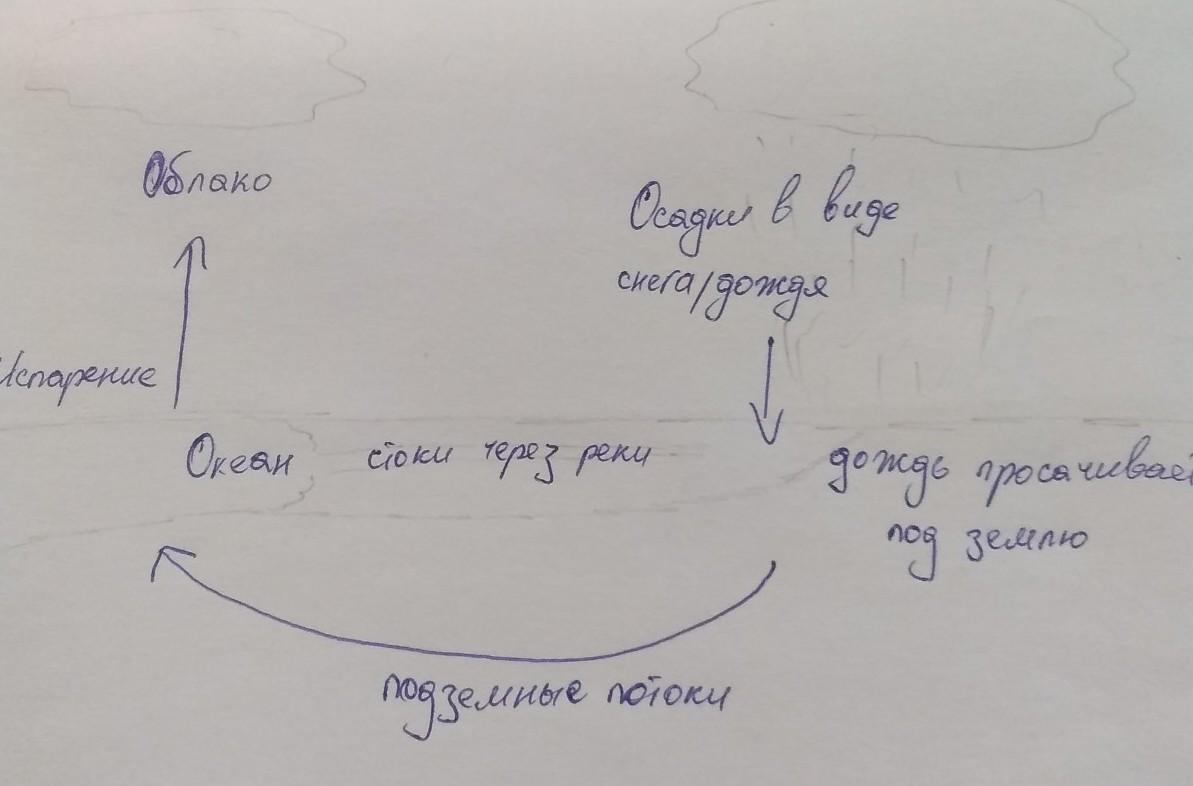 Облако
Осадки в виде
снега/дождя
Испарение
Океан стоки через реки
дождь просачивает
под землю
подземные потоки